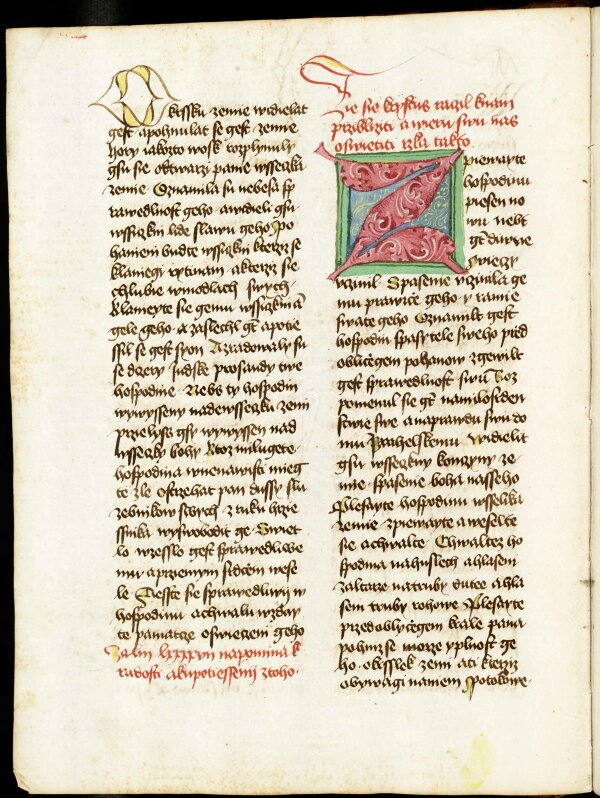 Okrssku zemie widielat
gest apohnulat se gest zemie
hory iakozto wosk rozplynuly
gsu sie obtwarzi panie wsseczka
zemie Oznamila su nebesa sp
rawedlnost geho awidieli gsu
wssiczkni lide slawu geho Po
hanieni budte wssiczkni kterziz se
klaniegi rytinam akterziz sie
chlubie wmodlach swych
Klaneyte sie gemu wssiczkni an
gele geho azaslechl gt apotie
ssil se gest syon Azradowaly su
se dczery Judske prosaudy twe
hospodine Nebs ty hospodin
wywysseny nadewsseczku zemi
przieliss gsy wywyssen nad
wsseczky bohy Ktoz milugete
hospodina wnenawisti mieg
te zle ostrzehat pan dussy slu
zebnikow swych zruku hrzie
ssnika wyswobodit ge Swiet
lo wzesslo gest sprawedliwe
mu aprziemym srdcem wese
le Tiesste sie sprawedliwij w
hospodinu achwalu wzday
te pamatcze oswieczeni geho
Zalm lxxxxvii napomina k
radosti akupotiessenij ztoho
Zie sie krystus raczil knam
przibliziti awieru swu nas
oswietiti rzka takto
Zpiewayte
hospodinu
piesen no
wu nebt
gt diwne
wieczi
vczinil Spasenie vczinila ge
mu prawicze geho y ramie
swate geho Oznamilt gest
hospodin spasytele sweho przed
obliczegem pohanow zgewilt
gest sprawedlnost swu Roz
pomenul sie gt namilosrden
stwie swe anaprawdu swu do
mu Jzrahelskemu Widielit
gsu wsseczkny konczyny ze
mie spasenie boha nasseho
Plesayte hospodinu wsselika
zemie zpiewayte aweselte
sie achwalte Chwaltez ho
spodina nahuslech ahlasem
zaltarze natruby dutee ahla
sem truby rohowe Plesayte
przedobliczegem krale pana
pohniz se morze yplnost ge
ho okrsslek zemi ati kterziz
obywagi naniem Potokowe